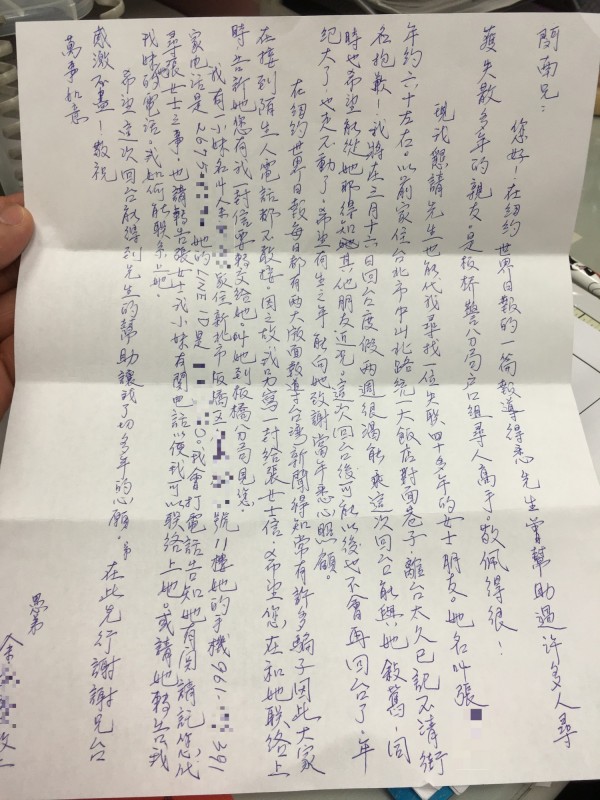 閔南兄:
您好!在紐約世界日報的一篇報導得悉先生曾幫助過許多人尋
獲失散多年的親友。是板橋警分局戶口組尋人高手,敬佩得很!
現我懇請先生也能代我尋找一位失联四十多年的女士朋友。她名叫張
年約六十左右。以前家住台北市中山北路統一大飯店對面巷子,離台太久已記不清街
名抱歉!我將在三月十六日回台度假兩週很渴能乘這次回台能與她敘舊,同
時也希望能從她那得知她其他朋友近況。這次回台後可能以後也不會再回台了。年
紀大了,也走不動了。希望有生之年能向她致謝當年悉心照顧。
在紐約世界日報每日都有兩大版面報導台灣新聞得知常有許多騙子因此大家
在接到陌生人電話都不敢接。因之故,我另寫一封給張女士信。希望您,在和她联絡上
時,告訴她您有我一封信要轉交給她。叫她到板橋分局見您。
我有一小妹名叫余 家住新北市板橋区 號11樓她的手機961- 391
家电话是2675- 她的LINE ID是 0。我會打電話告知她有関請託您代
尋張女士之事。也請轉告張女士我小妹有関电話以便我可以联絡上她。或請她轉告我
我妹的電话。我如何能联系上她。
希望這次回台能得到先生的幫助讓我了切多年的心願。 在此先行謝謝兄台
感激不盡!敬祝
萬事如意
愚弟
余 敬上